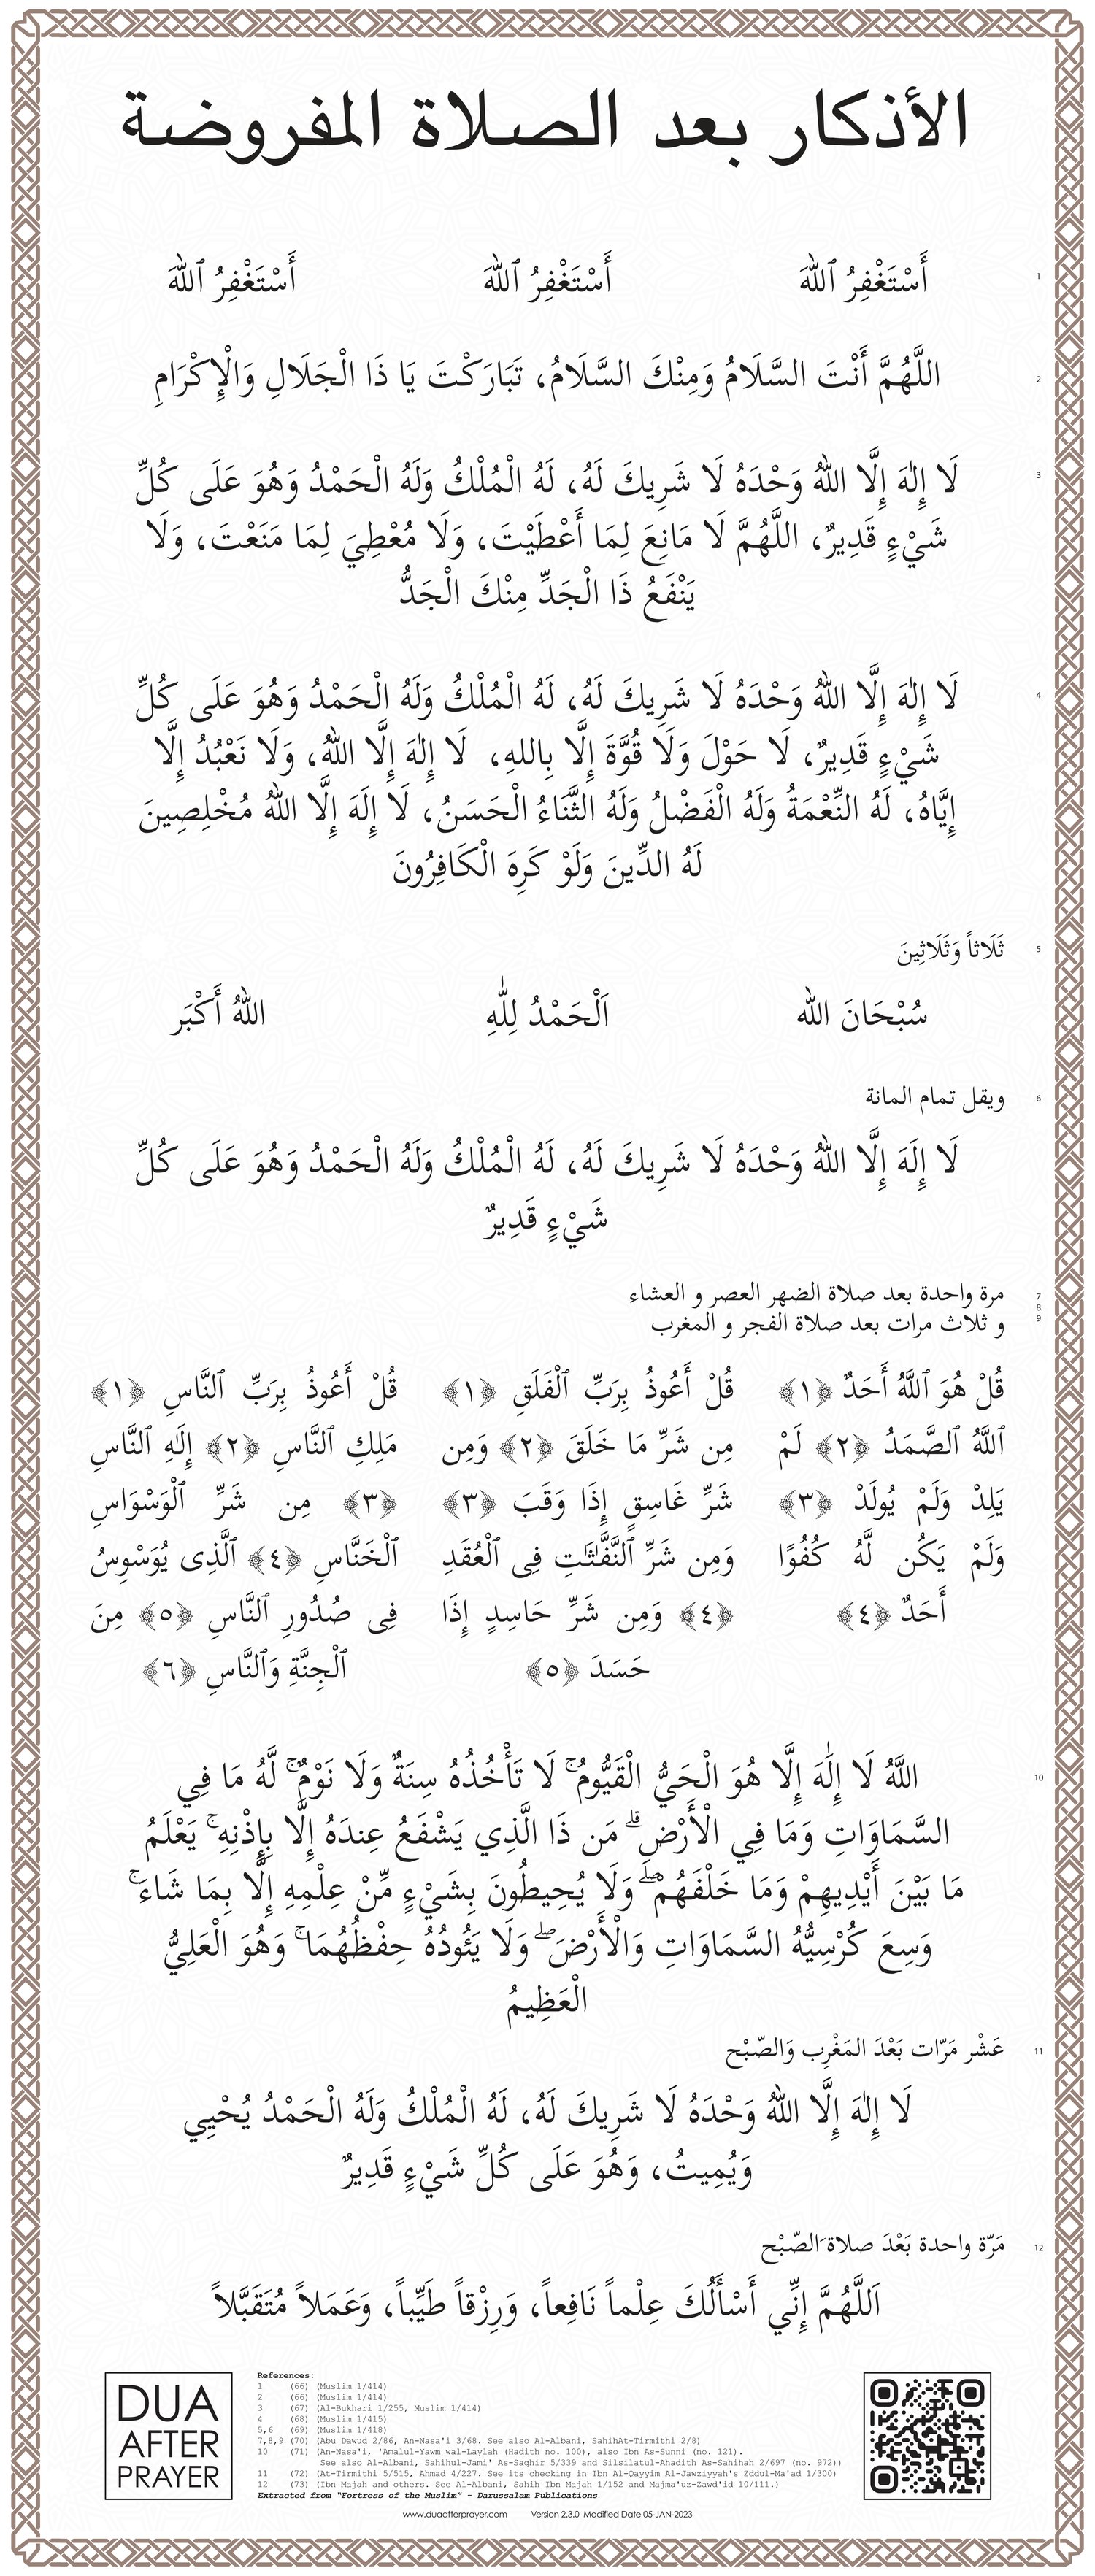 الأذكار بعد الصلاة المفروضة
1
أَسْتَغْفِرُ ٱللهَ أَسْتَغْفِرُ ٱللهَ أَسْتَغْفِرُ ٱللهَ
2
اللَّهُمَّ أَنْتَ السَّلَامُ وَمِنْكَ السَّلَامُ، تَبَارَكْتَ يَا ذَا الْجَلَالِ وَالْإِكْرَامِ
3
لَا إِلٰهَ إِلَّا اللهُ وَحْدَهُ لَا شَرِيكَ لَهُ، لَهُ الْمُلْكُ وَلَهُ الْحَمْدُ وَهُوَ عَلَى كُلِّ
شَيْءٍ قَدِيرٌ، اللَّهُمَّ لَا مَانِعَ لِمَا أَعْطَيْتَ، وَلَا مُعْطِيَ لِمَا مَنَعْتَ، وَلَا
يَنْفَعُ ذَا الْجَدِّ مِنْكَ الْجَدُّ
4
لَا إِلٰهَ إِلَّا اللهُ وَحْدَهُ لَا شَرِيكَ لَهُ، لَهُ الْمُلْكُ وَلَهُ الْحَمْدُ وَهُوَ عَلَى كُلِّ
شَيْءٍ قَدِيرٌ، لَا حَوْلَ وَلَا قُوَّةَ إِلَّا بِاللهِ، لَا إِلٰهَ إِلَّا اللهُ، وَلَا نَعْبُدُ إِلَّا
إِيَّاهُ، لَهُ النِّعْمَةُ وَلَهُ الْفَضْلُ وَلَهُ الثَّنَاءُ الْحَسَنُ، لَا إِلَهَ إِلَّا اللهُ مُخْلِصِينَ
لَهُ الدِّينَ وَلَوْ كَرِهَ الْكَافِرُونَ
5
ثَلَاثاً وَثَلَاثِينَ
سُبْحَانَ الله اَلْحَمْدُ لِلّٰهِ اللهُ أَكْبَر
6
ويقل تمام المانة
لَا إِلَهَ إِلَّا اللهُ وَحْدَهُ لَا شَرِيكَ لَهُ، لَهُ الْمُلْكُ وَلَهُ الْحَمْدُ وَهُوَ عَلَى كُلِّ
شَيْءٍ قَدِيرٌ
7
8
9
مرة واحدة بعد صلاة الضهر العصر و العشاء
و ثلاث مرات بعد صلاة الفجر و المغرب
قُلْ هُوَ ٱللَّهُ أَحَدٌ ﴿١﴾
ٱللَّهُ ٱلصَّمَدُ ﴿٢﴾ لَمْ
يَلِدْ وَلَمْ يُولَدْ ﴿٣﴾
وَلَمْ يَكُن لَّهُ كُفُوًا
أَحَدٌ ﴿٤﴾
قُلْ أَعُوذُ بِرَبِّ ٱلْفَلَقِ ﴿١﴾
مِن شَرِّ مَا خَلَقَ ﴿٢﴾ وَمِن
شَرِّ غَاسِقٍ إِذَا وَقَبَ ﴿٣﴾
وَمِن شَرِّ ٱلنَّفَّٰثَٰتِ فِى ٱلْعُقَدِ
﴿٤﴾ وَمِن شَرِّ حَاسِدٍ إِذَا
حَسَدَ ﴿٥﴾
قُلْ أَعُوذُ بِرَبِّ ٱلنَّاسِ ﴿١﴾
مَلِكِ ٱلنَّاسِ ﴿٢﴾ إِلَٰهِ ٱلنَّاسِ
﴿٣﴾ مِن شَرِّ ٱلْوَسْوَاسِ
ٱلْخَنَّاسِ ﴿٤﴾ ٱلَّذِى يُوَسْوِسُ
فِى صُدُورِ ٱلنَّاسِ ﴿٥﴾ مِنَ
ٱلْجِنَّةِ وَٱلنَّاسِ ﴿٦﴾
10
اللَّهُ لَا إِلَٰهَ إِلَّا هُوَ الْحَيُّ الْقَيُّومُ ۚ لَا تَأْخُذُهُ سِنَةٌ وَلَا نَوْمٌ ۚ لَّهُ مَا فِي
السَّمَاوَاتِ وَمَا فِي الْأَرْضِ ۗ مَن ذَا الَّذِي يَشْفَعُ عِندَهُ إِلَّا بِإِذْنِهِ ۚ يَعْلَمُ
مَا بَيْنَ أَيْدِيهِمْ وَمَا خَلْفَهُمْ ۖ وَلَا يُحِيطُونَ بِشَيْءٍ مِّنْ عِلْمِهِ إِلَّا بِمَا شَاءَ ۚ
وَسِعَ كُرْسِيُّهُ السَّمَاوَاتِ وَالْأَرْضَ ۖ وَلَا يَئُودُهُ حِفْظُهُمَا ۚ وَهُوَ الْعَلِيُّ
الْعَظِيمُ
11
عَشْر مَرّات بَعْدَ المَغْرِب وَالصّبْح
لَا إِلٰهَ إِلَّا اللهُ وَحْدَهُ لَا شَرِيكَ لَهُ، لَهُ الْمُلْكُ وَلَهُ الْحَمْدُ يُحْيِي
وَيُمِيتُ، وَهُوَ عَلَى كُلِّ شَيْءٍ قَدِيرٌ
12
مَرّة واحدة بَعْدَ صلاة َالصّبْح
اَللَّهُمَّ إِنِّي أَسْأَلُكَ عِلْماً نَافِعاً، وَرِزْقاً طَيِّباً، وَعَمَلاً مُتَقَبَّلاً
DUA
AFTER
PRAYER
References:
1 (66) (Muslim 1/414)
2 (66) (Muslim 1/414)
3 (67) (Al-Bukhari 1/255, Muslim 1/414)
4 (68) (Muslim 1/415)
5,6 (69) (Muslim 1/418)
7,8,9 (70) (Abu Dawud 2/86, An-Nasa'i 3/68. See also Al-Albani, SahihAt-Tirmithi 2/8)
10 (71) (An-Nasa'i, 'Amalul-Yawm wal-Laylah (Hadith no. 100), also Ibn As-Sunni (no. 121).
See also Al-Albani, Sahihul-Jami' As-Saghir 5/339 and Silsilatul-Ahadith As-Sahihah 2/697 (no. 972))
11 (72) (At-Tirmithi 5/515, Ahmad 4/227. See its checking in Ibn Al-Qayyim Al-Jawziyyah's Zddul-Ma'ad 1/300)
12 (73) (Ibn Majah and others. See Al-Albani, Sahih Ibn Majah 1/152 and Majma'uz-Zawd'id 10/111.)
Extracted from "Fortress of the Muslim" - Darussalam Publications
www.duaafterprayer.com Version 2.3.0 Modified Date 05-JAN-2023